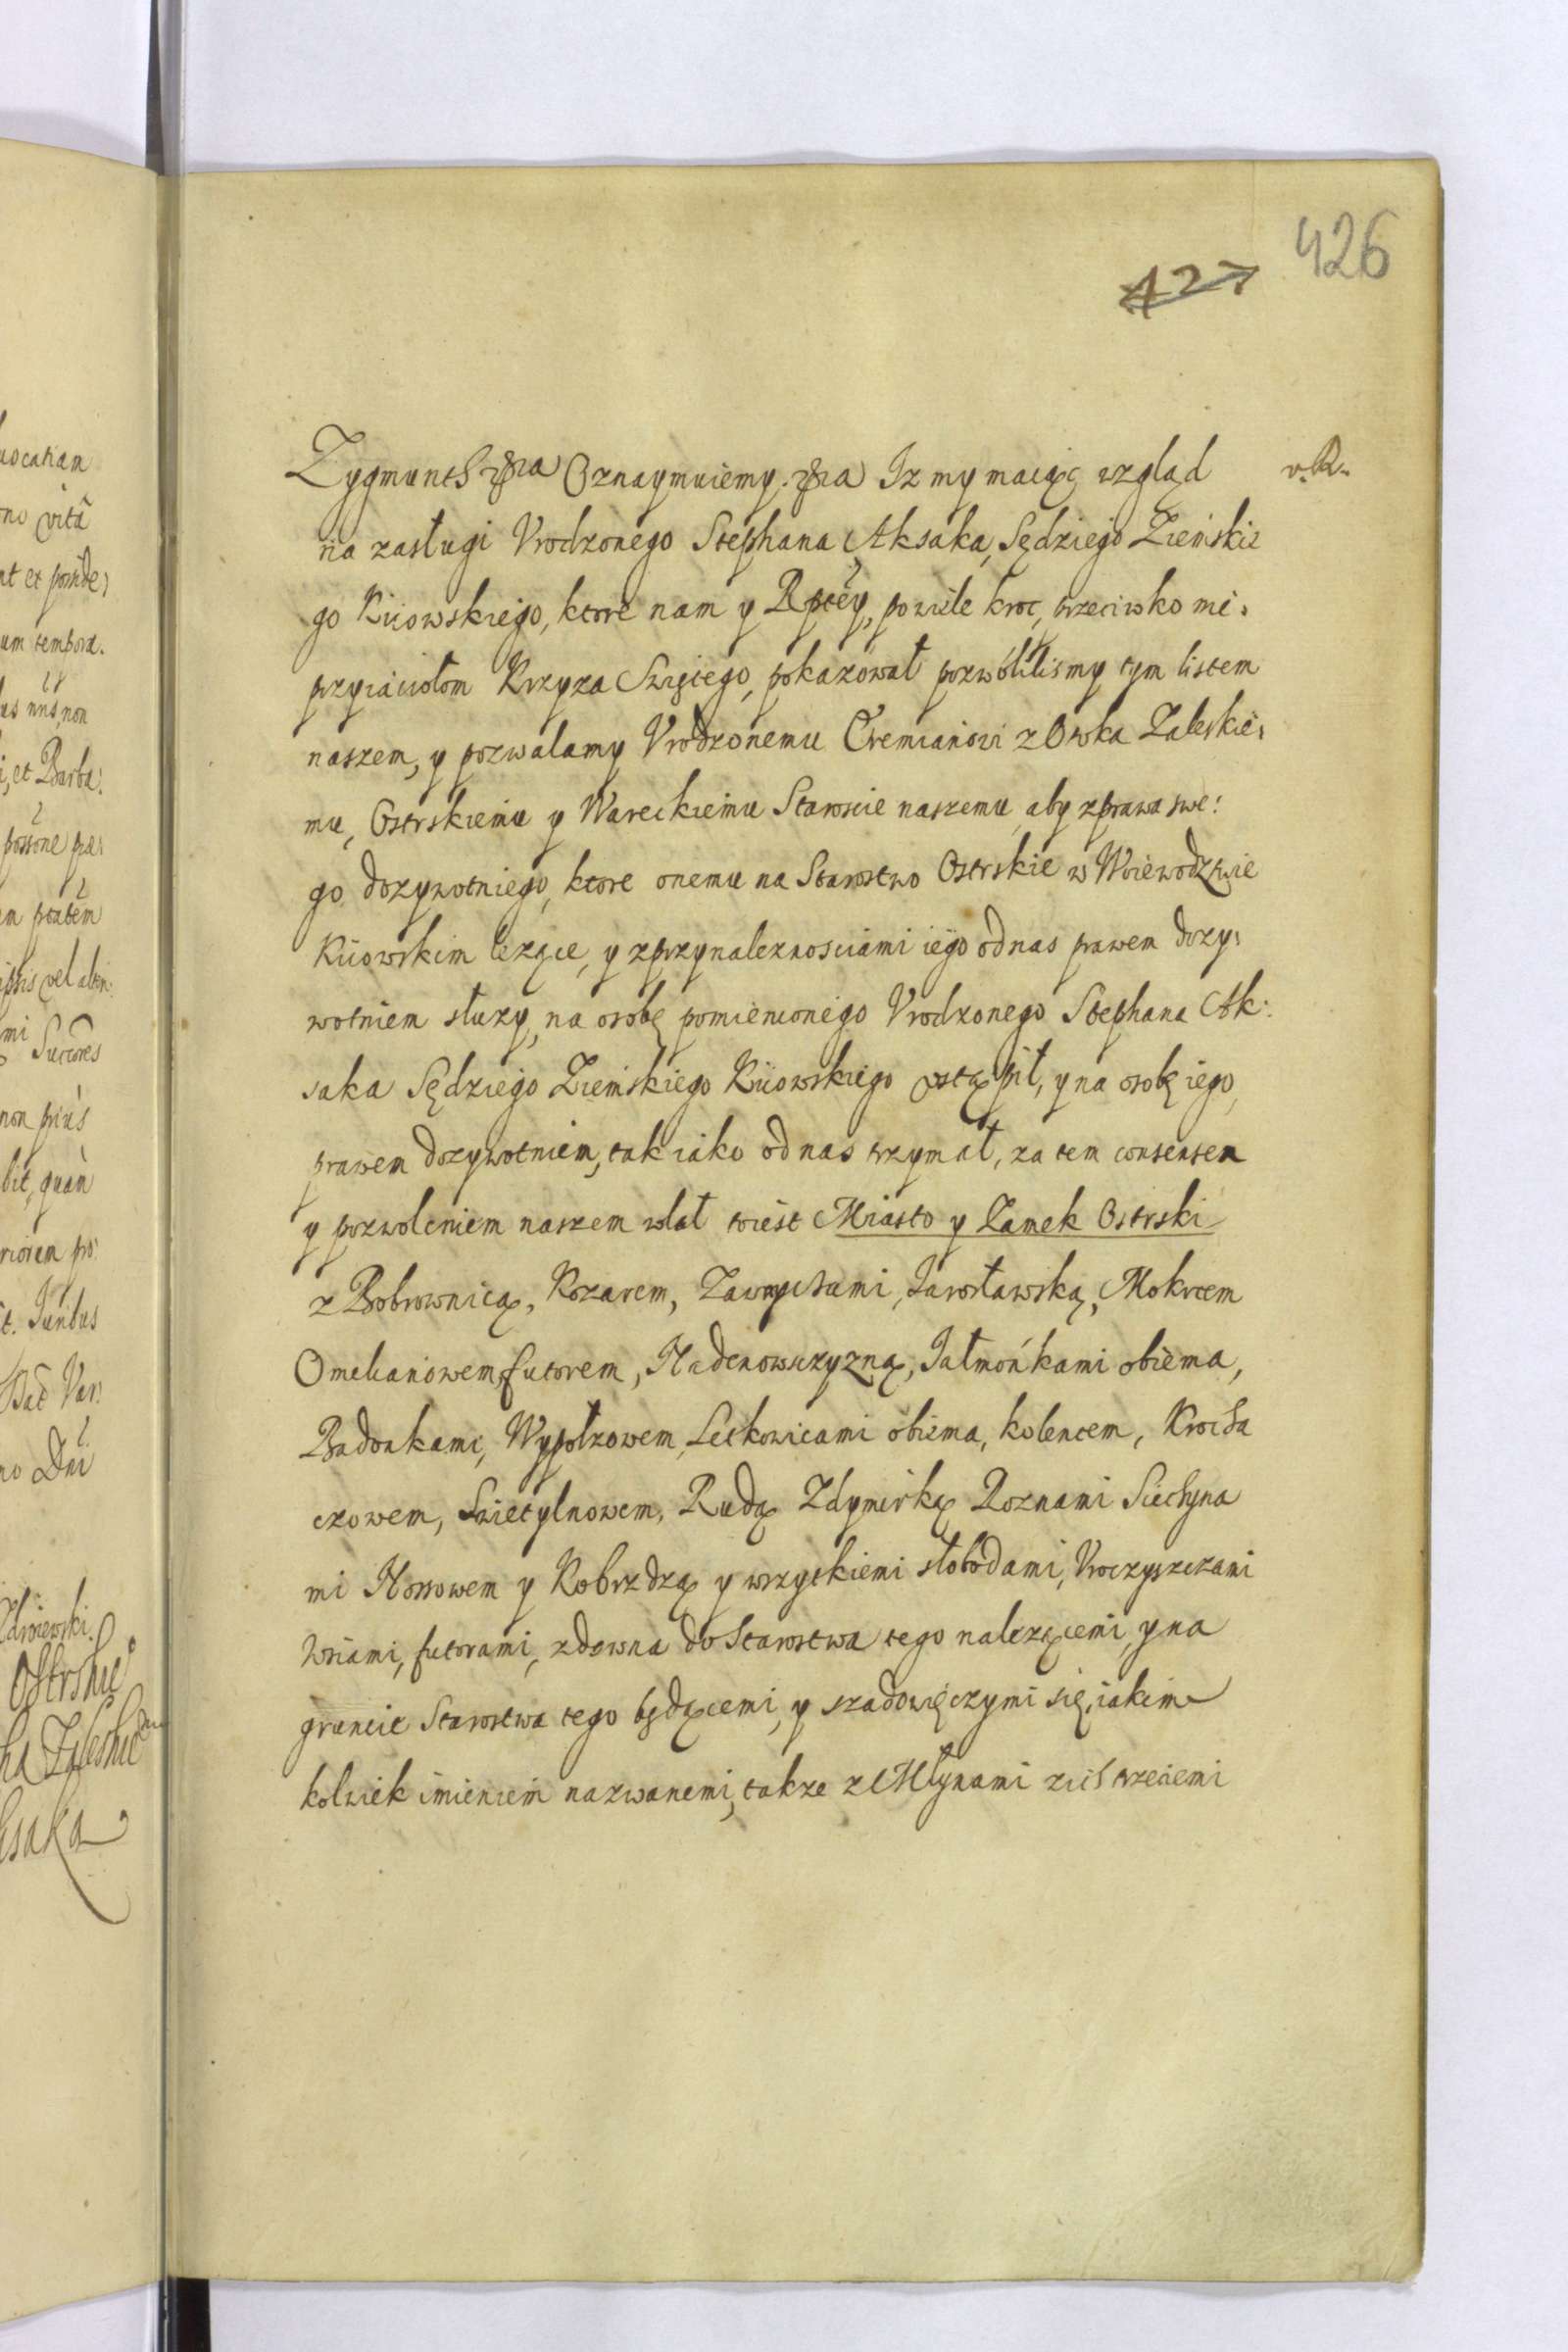 426
427
Zygmunth etca Oznaymuiemy. etca Iz my maiąc wzgląd
v. R.
na zasługi Vrodzonego Stephana Aksaka, Sędziego Ziemskie
go Kiiowskiego, ktore nam y Rptey, powiele kroc, przeciwko nie:
przyiaciołom Krzyza Swiętego, pokazował pozwolilismy tym listem
naszem, y pozwalamy Vrodzonemu Jeremianowi z Otoka Zaleskie:
mu, Ostrskiemu y Wareckiemu Staroscie naszemu, aby zprawa swe:
go dozywotniego, ktore onemu na Starostwo Ostrskie w Woiewodztwie
Kiiowskim lezące, y zprzynaleznosciami iego od nas prawem dozy:
wotniem słuzy, na osobę pomienionego Vrodzonego Stephana Ak:
saka Sędziego Ziemskiego Kiiowskiego vstąpił, y na osobę iego,
prawem dozywotniem, tak iako od nas trzymał, za tem consensem
y pozwoleniem naszem wlał toiest Miasto y Zamek Ostrski
z Bobrownicą, Kozarem, Jarosławską, Mokrcem
Omelianowem futorem, Nadenowszyzną, Jałmońkami obiema,
Badonkami, Wypołzowem, Leckowicami obiema, kolencem, Krocha
czowem, Swietylnowem, Rudą Zdymirką Roznami Siechyna
mi Nossowem y Kobrzdzą y wszytkiemi słobodami, Vroczyszczami
Wsiami, futorami, zdawna do Starostwa tego nalezącemi, y na
gruncie Starostwa tego będącemi, y szadowięczymi się, iakim
kolwiek imieniem nazwanemi, takze z Młynami zich trzeciemi